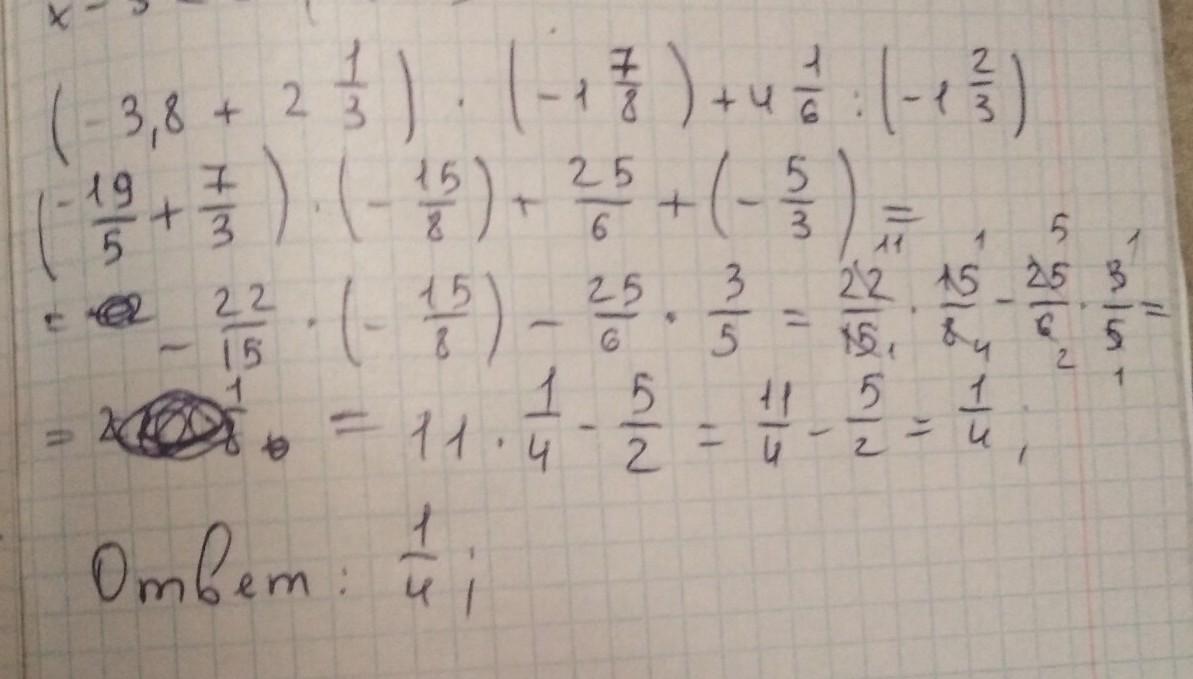 (-3,8 + 2 1/3) · (-1 7/8) + 4 1/6 : (-1 2/3)
(-19/5 + 7/3) · (- 15/8) + 25/6 + (- 5/3) =
= - 22/15 · (- 15/8) - 25/6 · 3/5 = 22/15 · 15/8 - 25/6 · 3/5 =
= = 11 · 1/4 - 5/2 = 11/4 - 5/2 = 1/4 ;
Ответ: 1/4 ;